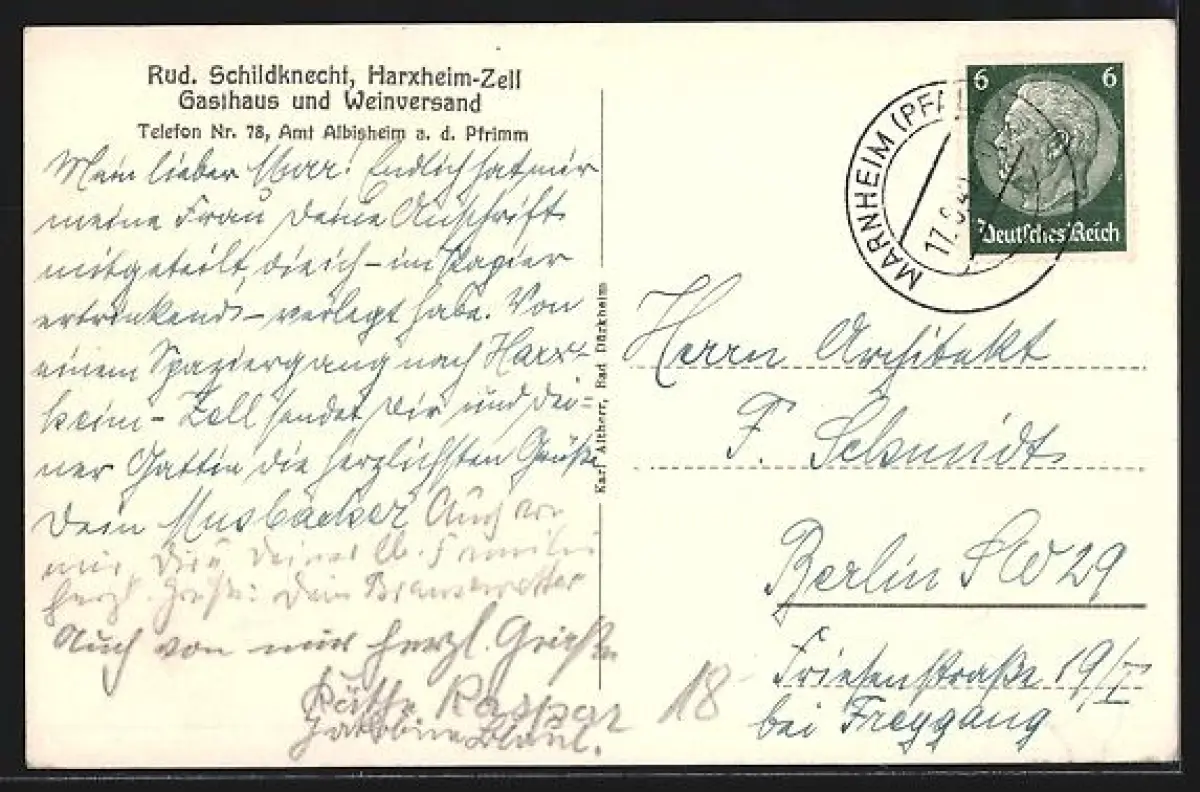 Rud. Schildknecht, Harxheim-Zell
Gasthaus und Weinversand
Telefon Nr. 78, Amt Albisheim a. d. Pfrimm
Mein lieber Endlich hat mir
meine Frau deine Anschrift
mitgeteilt, die ich - im Papier
ertrinkend - verlegt habe. Von
einem Spaziergang nach Harx-
heim-Zell sendet Dir und dei=
ner Gattin die herzlichsten Grüße
Dein Musbäcker Auch von
mir, Dir u. Deiner lb. Familie
herzl. Grüße: Dein
Auch von mir herzl. Grüße
Käthe Kaspar
Jakobine
Karl Altherr, Bad Dürkheim
MARNHEIM (PFA
17.
6 6
Deutsches Reich
Herrn Architekt
F. Schmidt
Berlin SW 29
Friesenstraße 19/I
bei Freygang
18